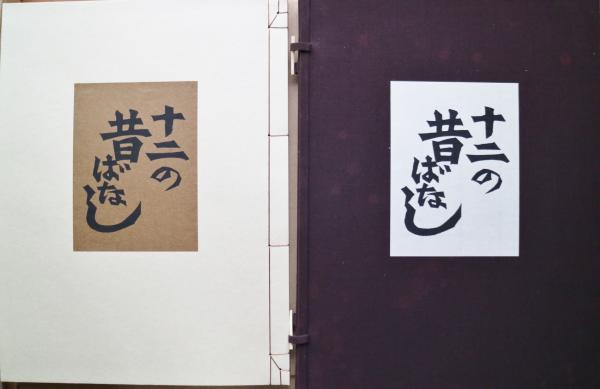 十二の
昔ばなし
十二の
昔ばなし